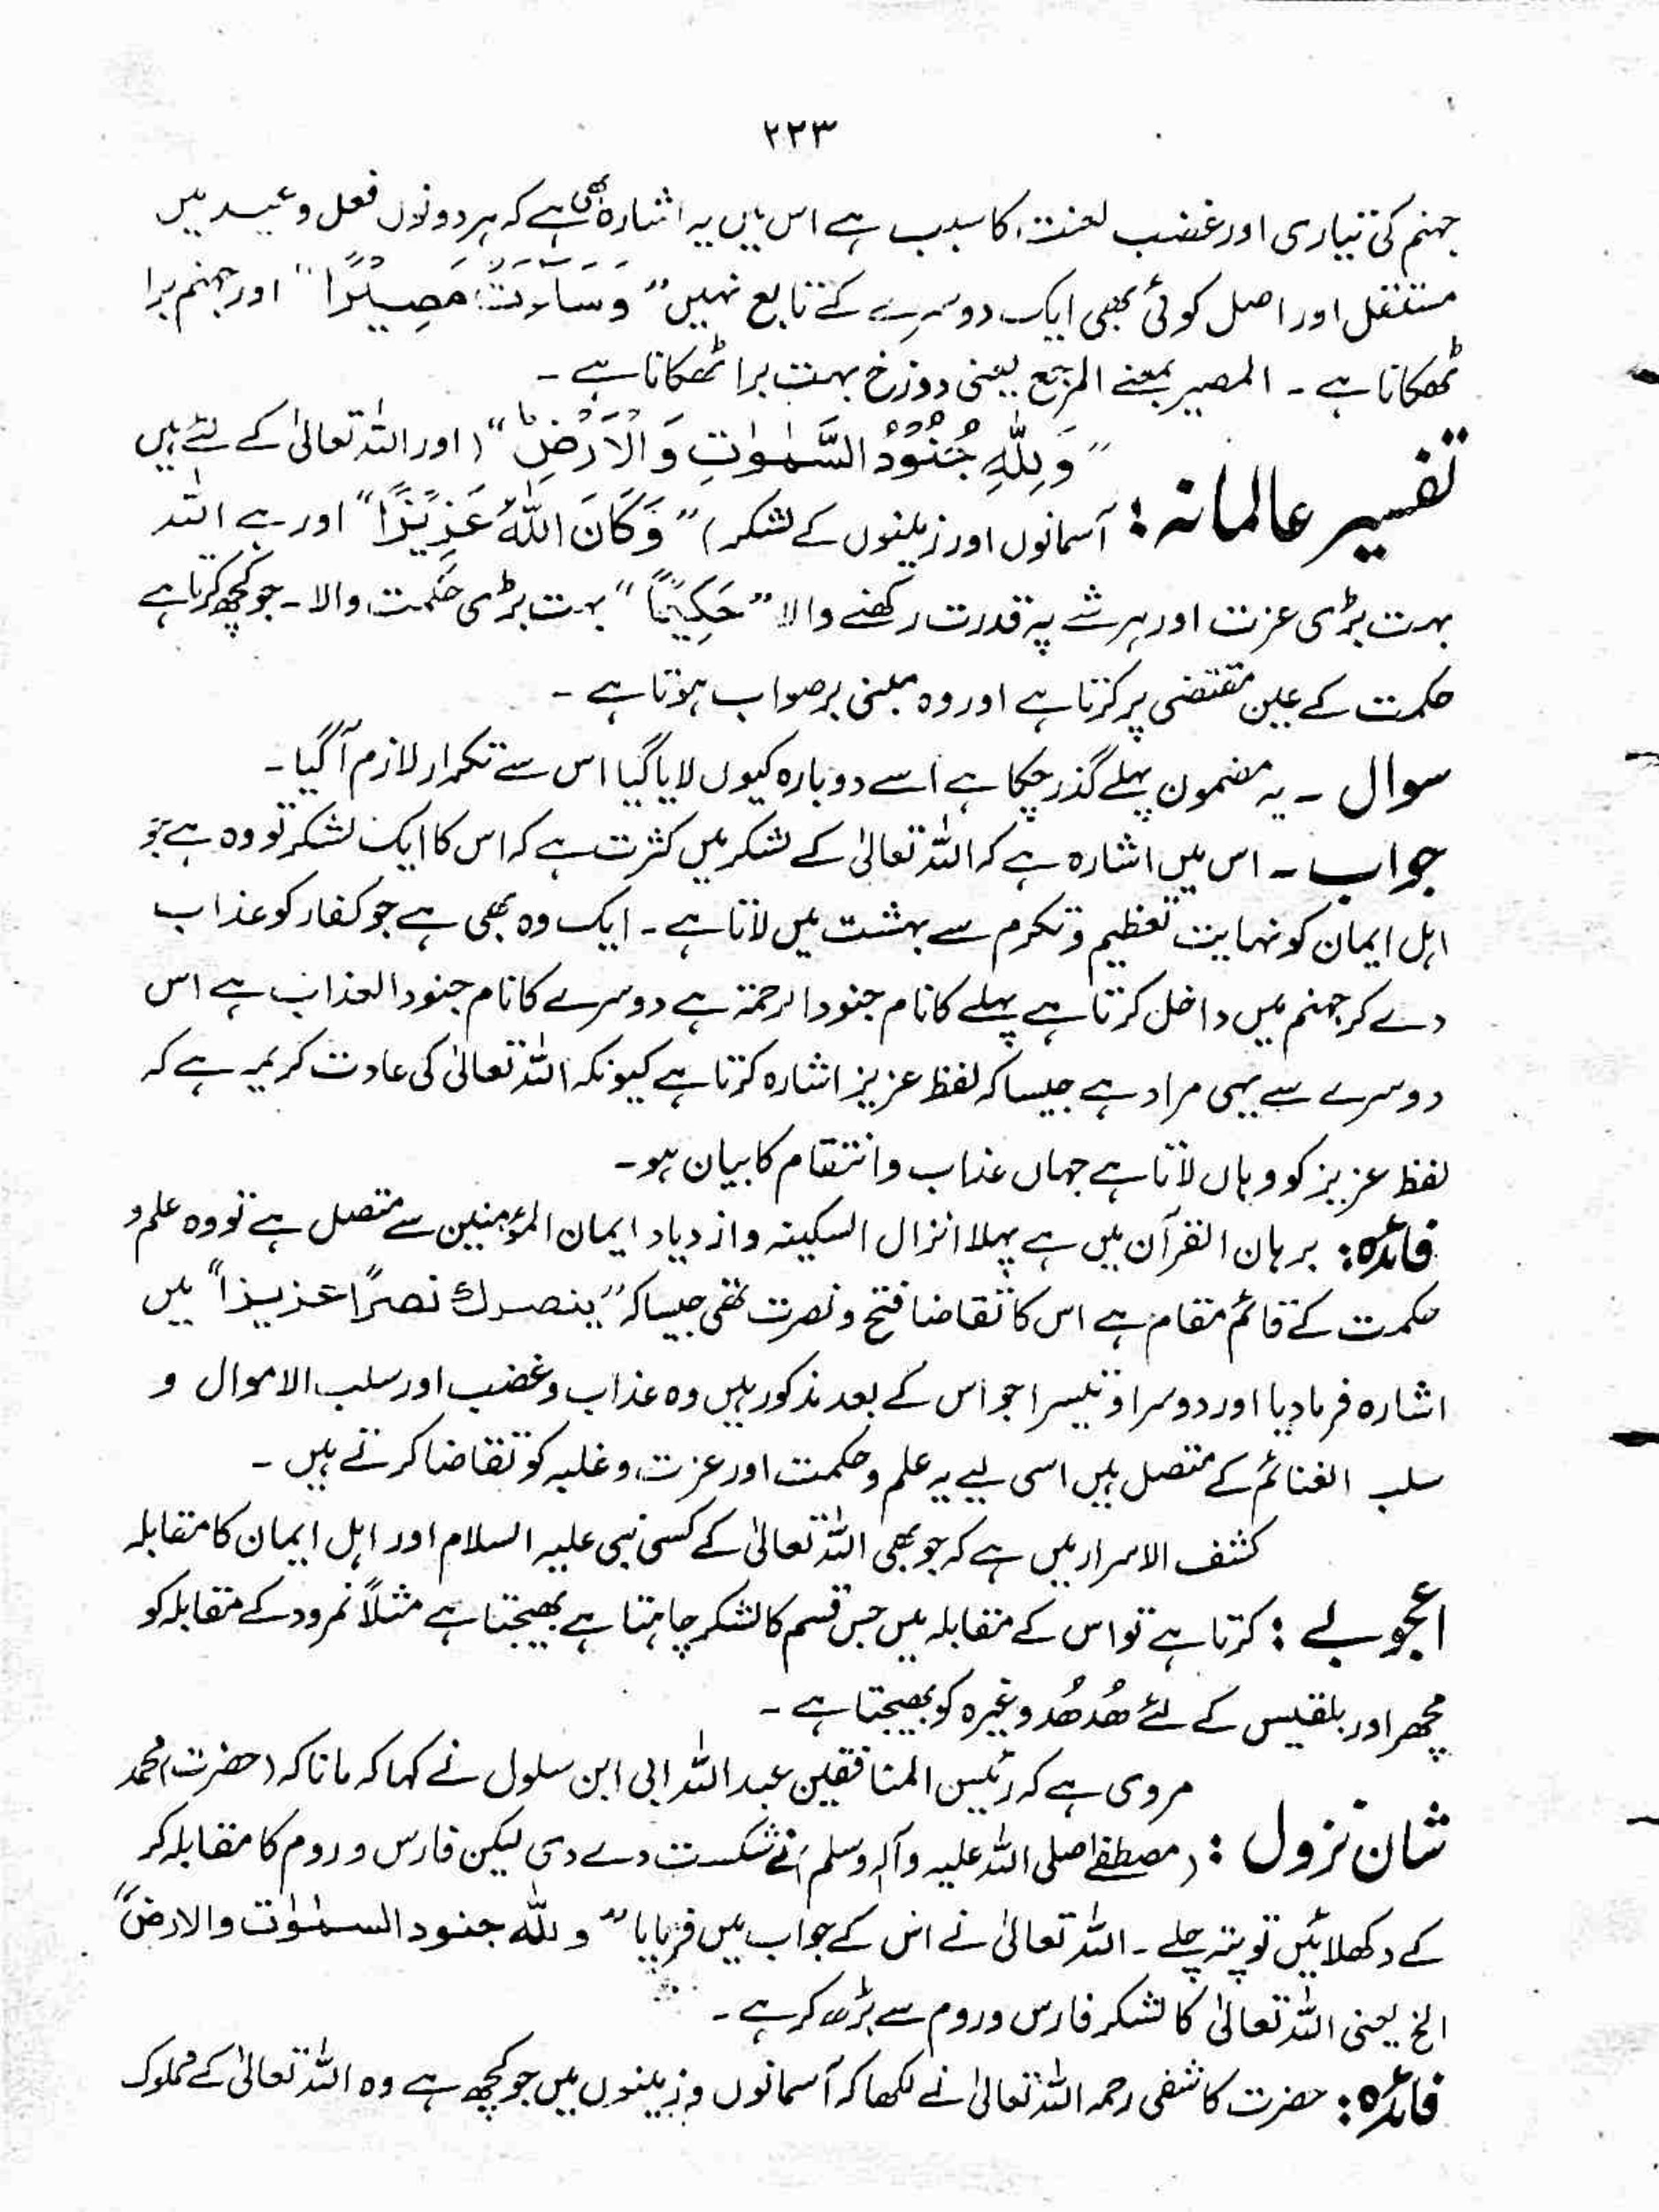 ۲۲۳
جہنم کی تیاری اور غضب لعنت کا سبب ہے اس میں یہ اشارہ بھی ہے کہ ہر دونوں فعل وعید میں
مستقل اور اصل کوئی بھی ایک دوسرے کے تابع نہیں "وَسَآءَتْ مَصِيْرًا" اور جہنم برا
ٹھکانا ہے ۔ المصیر بمعنے المرجع یعنی دوزخ بہت برا ٹھکانا ہے ۔
"وَلِلّٰهِ جُنُوْدُ السَّمٰوٰتِ وَالْاَرْضِ ط" (اور اللہ تعالیٰ کے لئے ہیں
تفسیر عالمانہ : آسمانوں اور زمینوں کے لشکر) "وَكَانَ اللّٰهُ عَزِيْزًا" اور ہے اللہ
بہت بڑی عزت اور ہر شے پہ قدرت رکھنے والا "حَكِيْمًا" بہت بڑی حکمت والا ۔ جو کچھ کرتا ہے
حکمت کے عین مقتضی پر کرتا ہے اور وہ مبنی بر صواب ہوتا ہے ۔
سوال ۔ یہ مضمون پہلے گذر چکا ہے اسے دوبارہ کیوں لایا گیا اس سے تکرار لازم آ گیا ۔
جواب ۔ اس میں اشارہ ہے کہ اللہ تعالیٰ کے لشکر میں کثرت ہے کہ اس کا ایک لشکر تو وہ ہے جو
اہل ایمان کو نہایت تعظیم و تکرم سے بہشت میں لاتا ہے ۔ ایک وہ بھی ہے جو کفار کو عذاب
دے کر جہنم میں داخل کرتا ہے پہلے کا نام جنود الرحمۃ ہے دوسرے کا نام جنود العذاب ہے اس
دوسرے سے یہی مراد ہے جیسا کہ لفظ عزیز اشارہ کرتا ہے کیونکہ اللہ تعالیٰ کی عادت کریمہ ہے کہ
لفظ عزیز کو وہاں لاتا ہے جہاں عذاب و انتقام کا بیان ہو ۔
فائدہ : برہان القرآن میں ہے پہلا انزال السکینہ و ازدیاد ایمان المؤمنین سے متصل ہے تو وہ علم و
حکمت کے قائم مقام ہے اس کا تقاضا فتح و نصرت تھی جیسا کہ "ینصرك نصرًا عزیزًا" میں
اشارہ فرما دیا اور دوسرا و تیسرا جو اس کے بعد مذکور ہیں وہ عذاب و غضب اور سلب الاموال و
سلب الغنائم کے متصل ہیں اسی لیے یہ علم و حکمت اور عزت و غلبہ کو تقاضا کرتے ہیں ۔
کشف الاسرار میں ہے کہ جو بھی اللہ تعالیٰ کے کسی نبی علیہ السلام اور اہل ایمان کا مقابلہ
اعجوبے : کرتا ہے تو اس کے مقابلہ میں جس قسم کا لشکر چاہتا ہے بھیجتا ہے مثلاً نمرود کے مقابلہ کو
مچھر اور بلقیس کے لئے ھُدھُد وغیرہ کو بھیجتا ہے ۔
مروی ہے کہ رئیس المنافقین عبد اللہ ابی ابن سلول نے کہا کہ مانا کہ (حضرت) محمد
شان نزول : (مصطفےٰ صلی اللہ علیہ وآلہ وسلم) نے شکست دے دی لیکن فارس و روم کا مقابلہ کر
کے دکھلائیں تو پتہ چلے ۔ اللہ تعالیٰ نے اس کے جواب میں فرمایا "وللّٰہ جنود السمٰوٰت والارض"
الخ یعنی اللہ تعالیٰ کا لشکر فارس و روم سے بڑھ کر ہے ۔
فائدہ : حضرت کاشفی رحمہ اللہ تعالیٰ نے لکھا کہ آسمانوں و زمینوں میں جو کچھ ہے وہ اللہ تعالیٰ کے مملوک